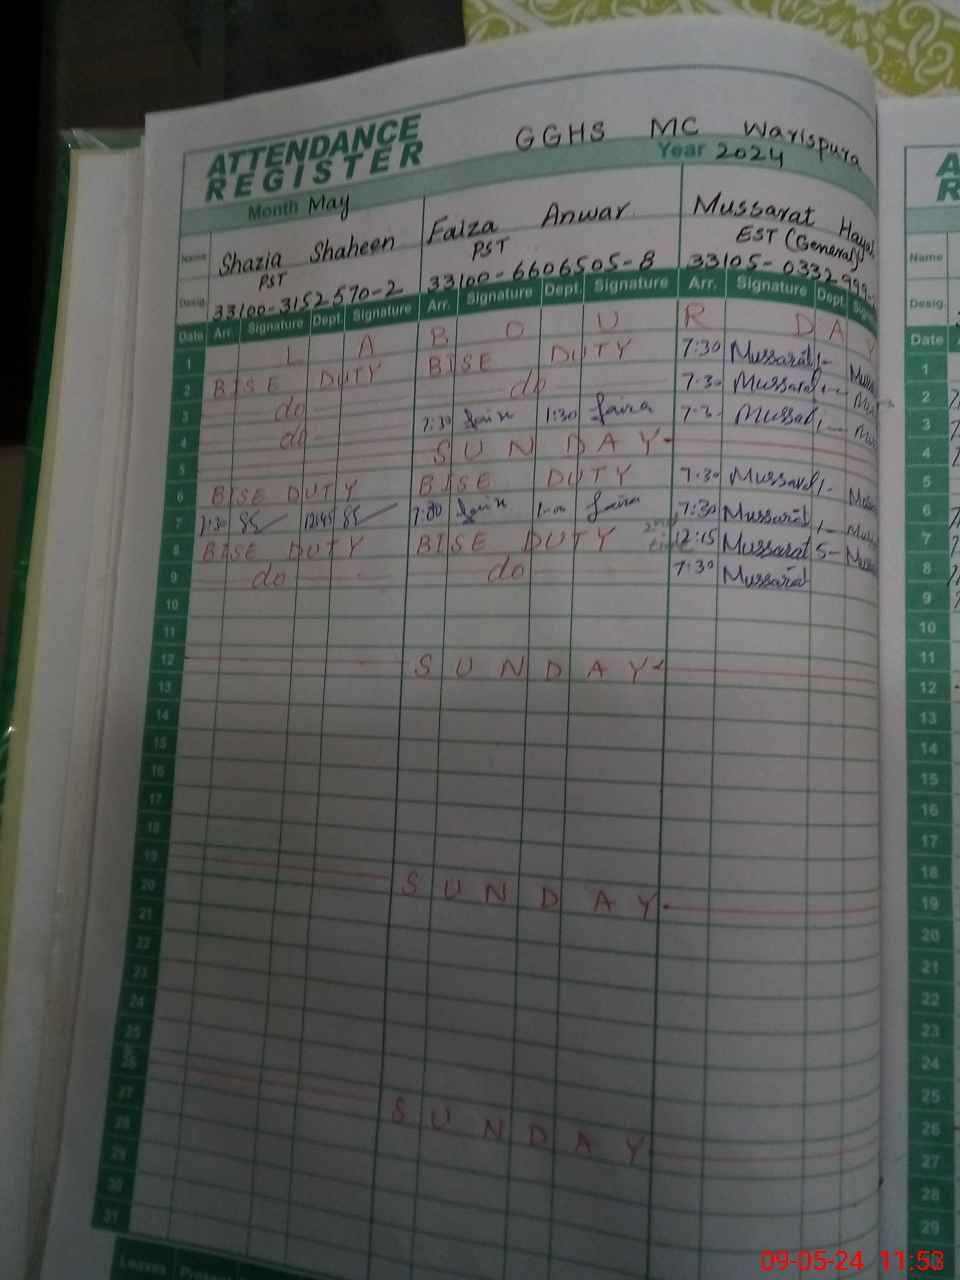 GGHS MC Warispura
ATTENDANCE
REGISTER
Year 2024
Month May
Name Shazia Shaheen Faiza Anwar Mussarat
PST PST EST (General)
Desig. 33100-3152570-2 33100-6606505-8 33105-0332999
Date Arr. Signature Dept. Signature Arr. Signature Dept. Signature Arr. Signature Dept.
1 L A B O U R D A Y
2 BISE DUTY BISE DUTY 7:30 Mussarat
3 do do 7:30 Mussarat
4 do 7:30 1:30 Faiza Mussarat
5 S U N D A Y
6 BISE DUTY BISE DUTY 7:30 Mussarat
7 7:30 12:45 7:30 7:30 Mussarat
8 BISE DUTY BISE DUTY 12:15 Mussarat
9 do do 7:30 Mussarat
10
11
12 S U N D A Y
13
14
15
16
17
18
19 S U N D A Y
20
21
22
23
24
25
26 S U N D A Y
27
28
29
30
31
Leaves
A
R
Name
Desig.
Date
1
2
3
4
5
6
7
8
9
10
11
12
13
14
15
16
17
18
19
20
21
22
23
24
25
26
27
28
29
09-05-24 11:53